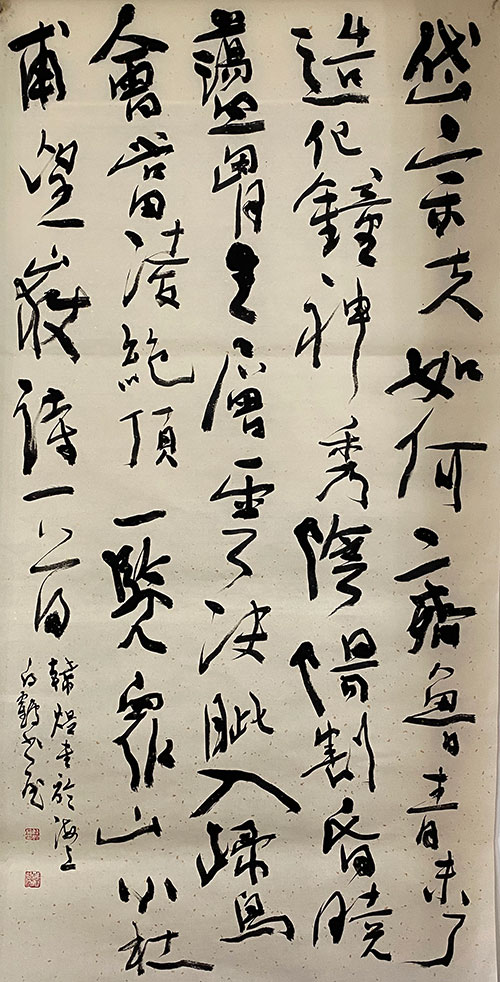 岱宗夫如何齊魯青未了
造化鐘神秀陰陽割昏曉
蕩胸生層雲決眦入歸鳥
會當凌絕頂一覽眾山小杜
甫望嶽詩一首
韓煜書於海上
白鶴書屋